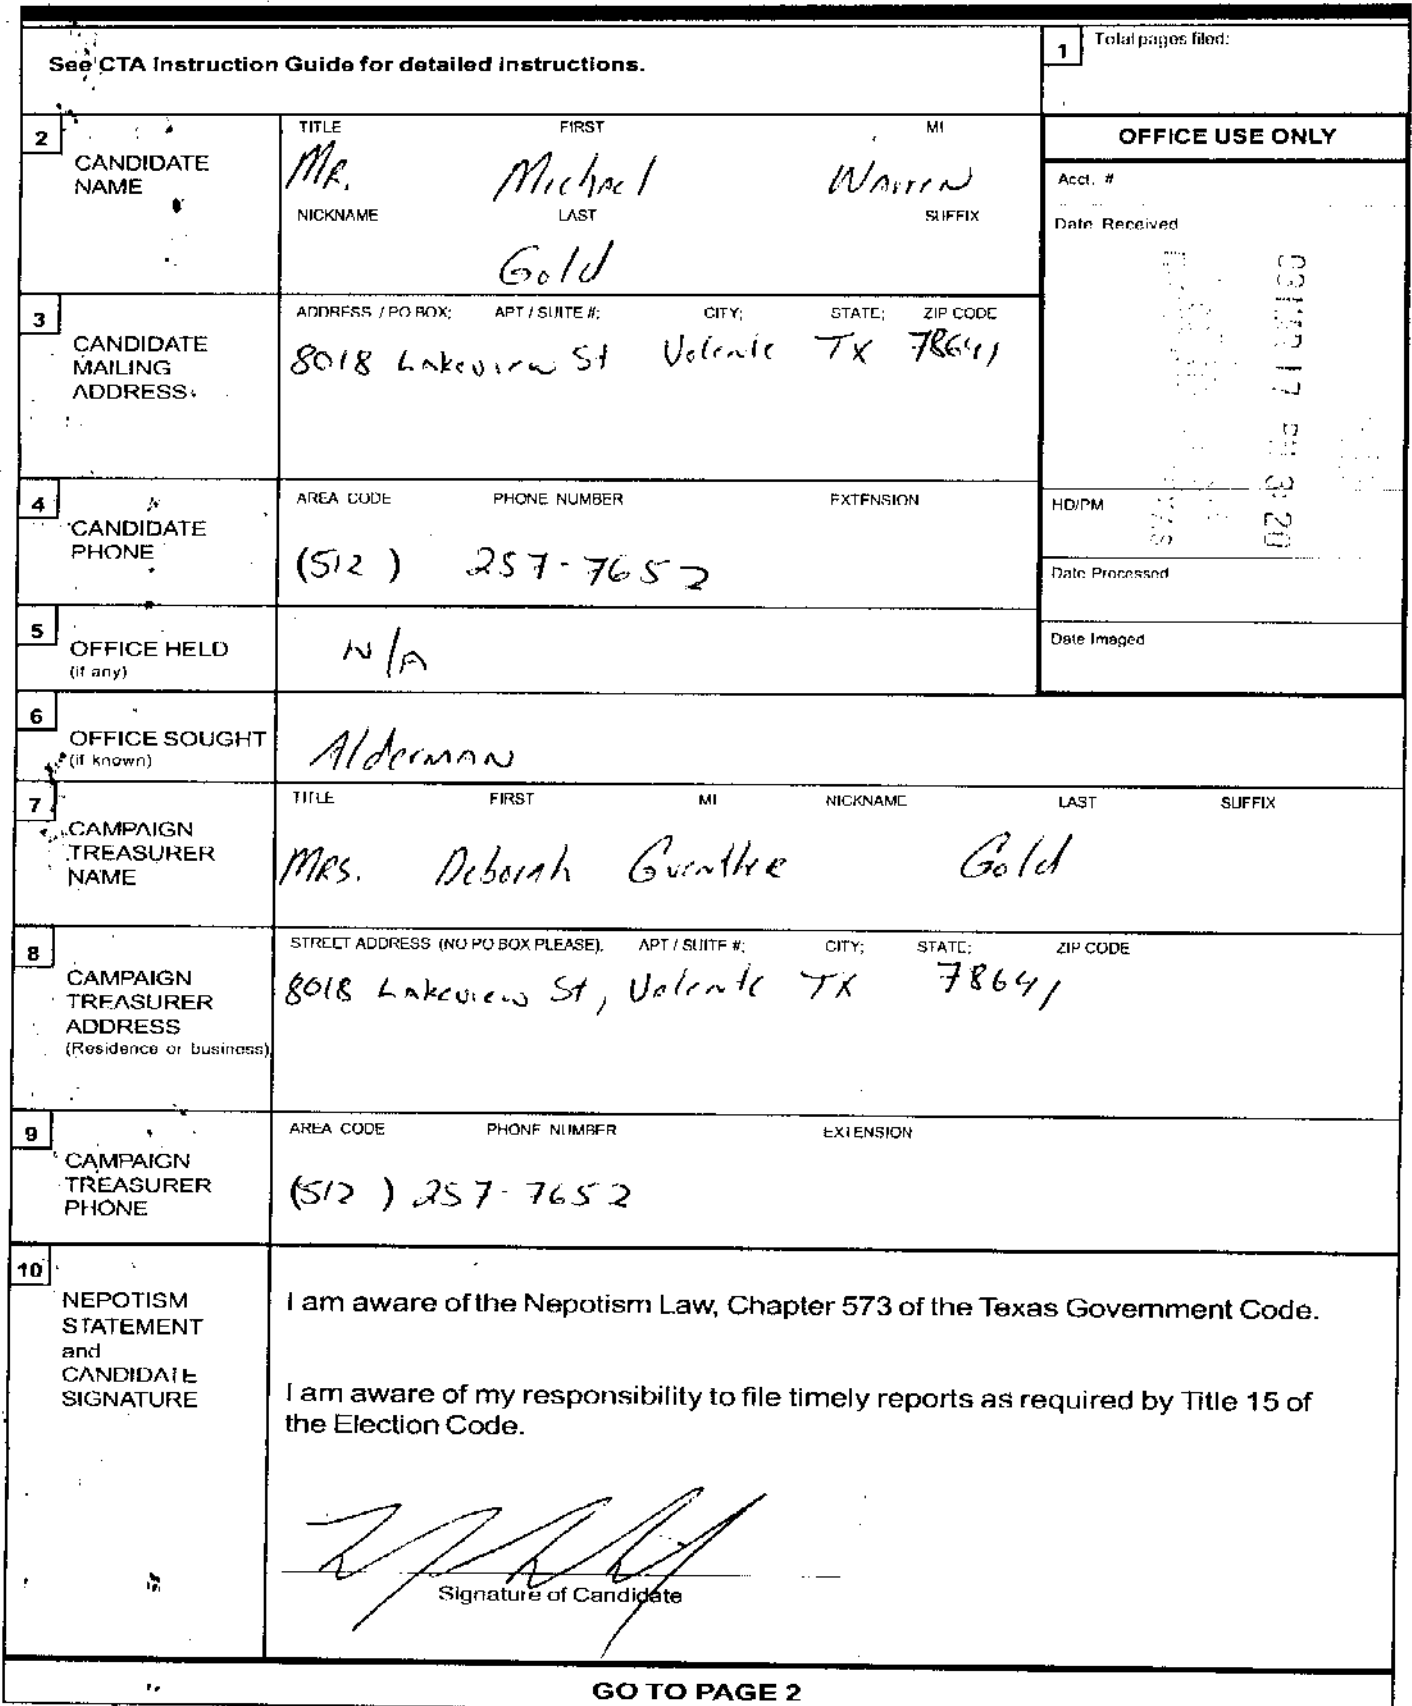 See CTA Instruction Guide for detailed instructions.
1 Total pages filed:
2 CANDIDATE NAME
TITLE FIRST MI
Mr. Michael Warren
NICKNAME LAST SUFFIX
Gold
OFFICE USE ONLY
Acct. #
Date Received
03 MAR 17 PM 3:20
HD/PM
Date Processed
Date Imaged
3 CANDIDATE MAILING ADDRESS
ADDRESS / PO BOX; APT / SUITE #; CITY; STATE; ZIP CODE
8018 Lakeview St Volente TX 78641
4 CANDIDATE PHONE
AREA CODE PHONE NUMBER EXTENSION
(512) 257-7652
5 OFFICE HELD (if any)
N/A
6 OFFICE SOUGHT (if known)
Alderman
7 CAMPAIGN TREASURER NAME
TITLE FIRST MI NICKNAME LAST SUFFIX
Mrs. Deborah Guenther Gold
8 CAMPAIGN TREASURER ADDRESS (Residence or business)
STREET ADDRESS (NO PO BOX PLEASE); APT / SUITE #; CITY; STATE; ZIP CODE
8018 Lakeview St, Volente TX 78641
9 CAMPAIGN TREASURER PHONE
AREA CODE PHONE NUMBER EXTENSION
(512) 257-7652
10 NEPOTISM STATEMENT and CANDIDATE SIGNATURE
I am aware of the Nepotism Law, Chapter 573 of the Texas Government Code.
I am aware of my responsibility to file timely reports as required by Title 15 of
the Election Code.
Signature of Candidate
GO TO PAGE 2